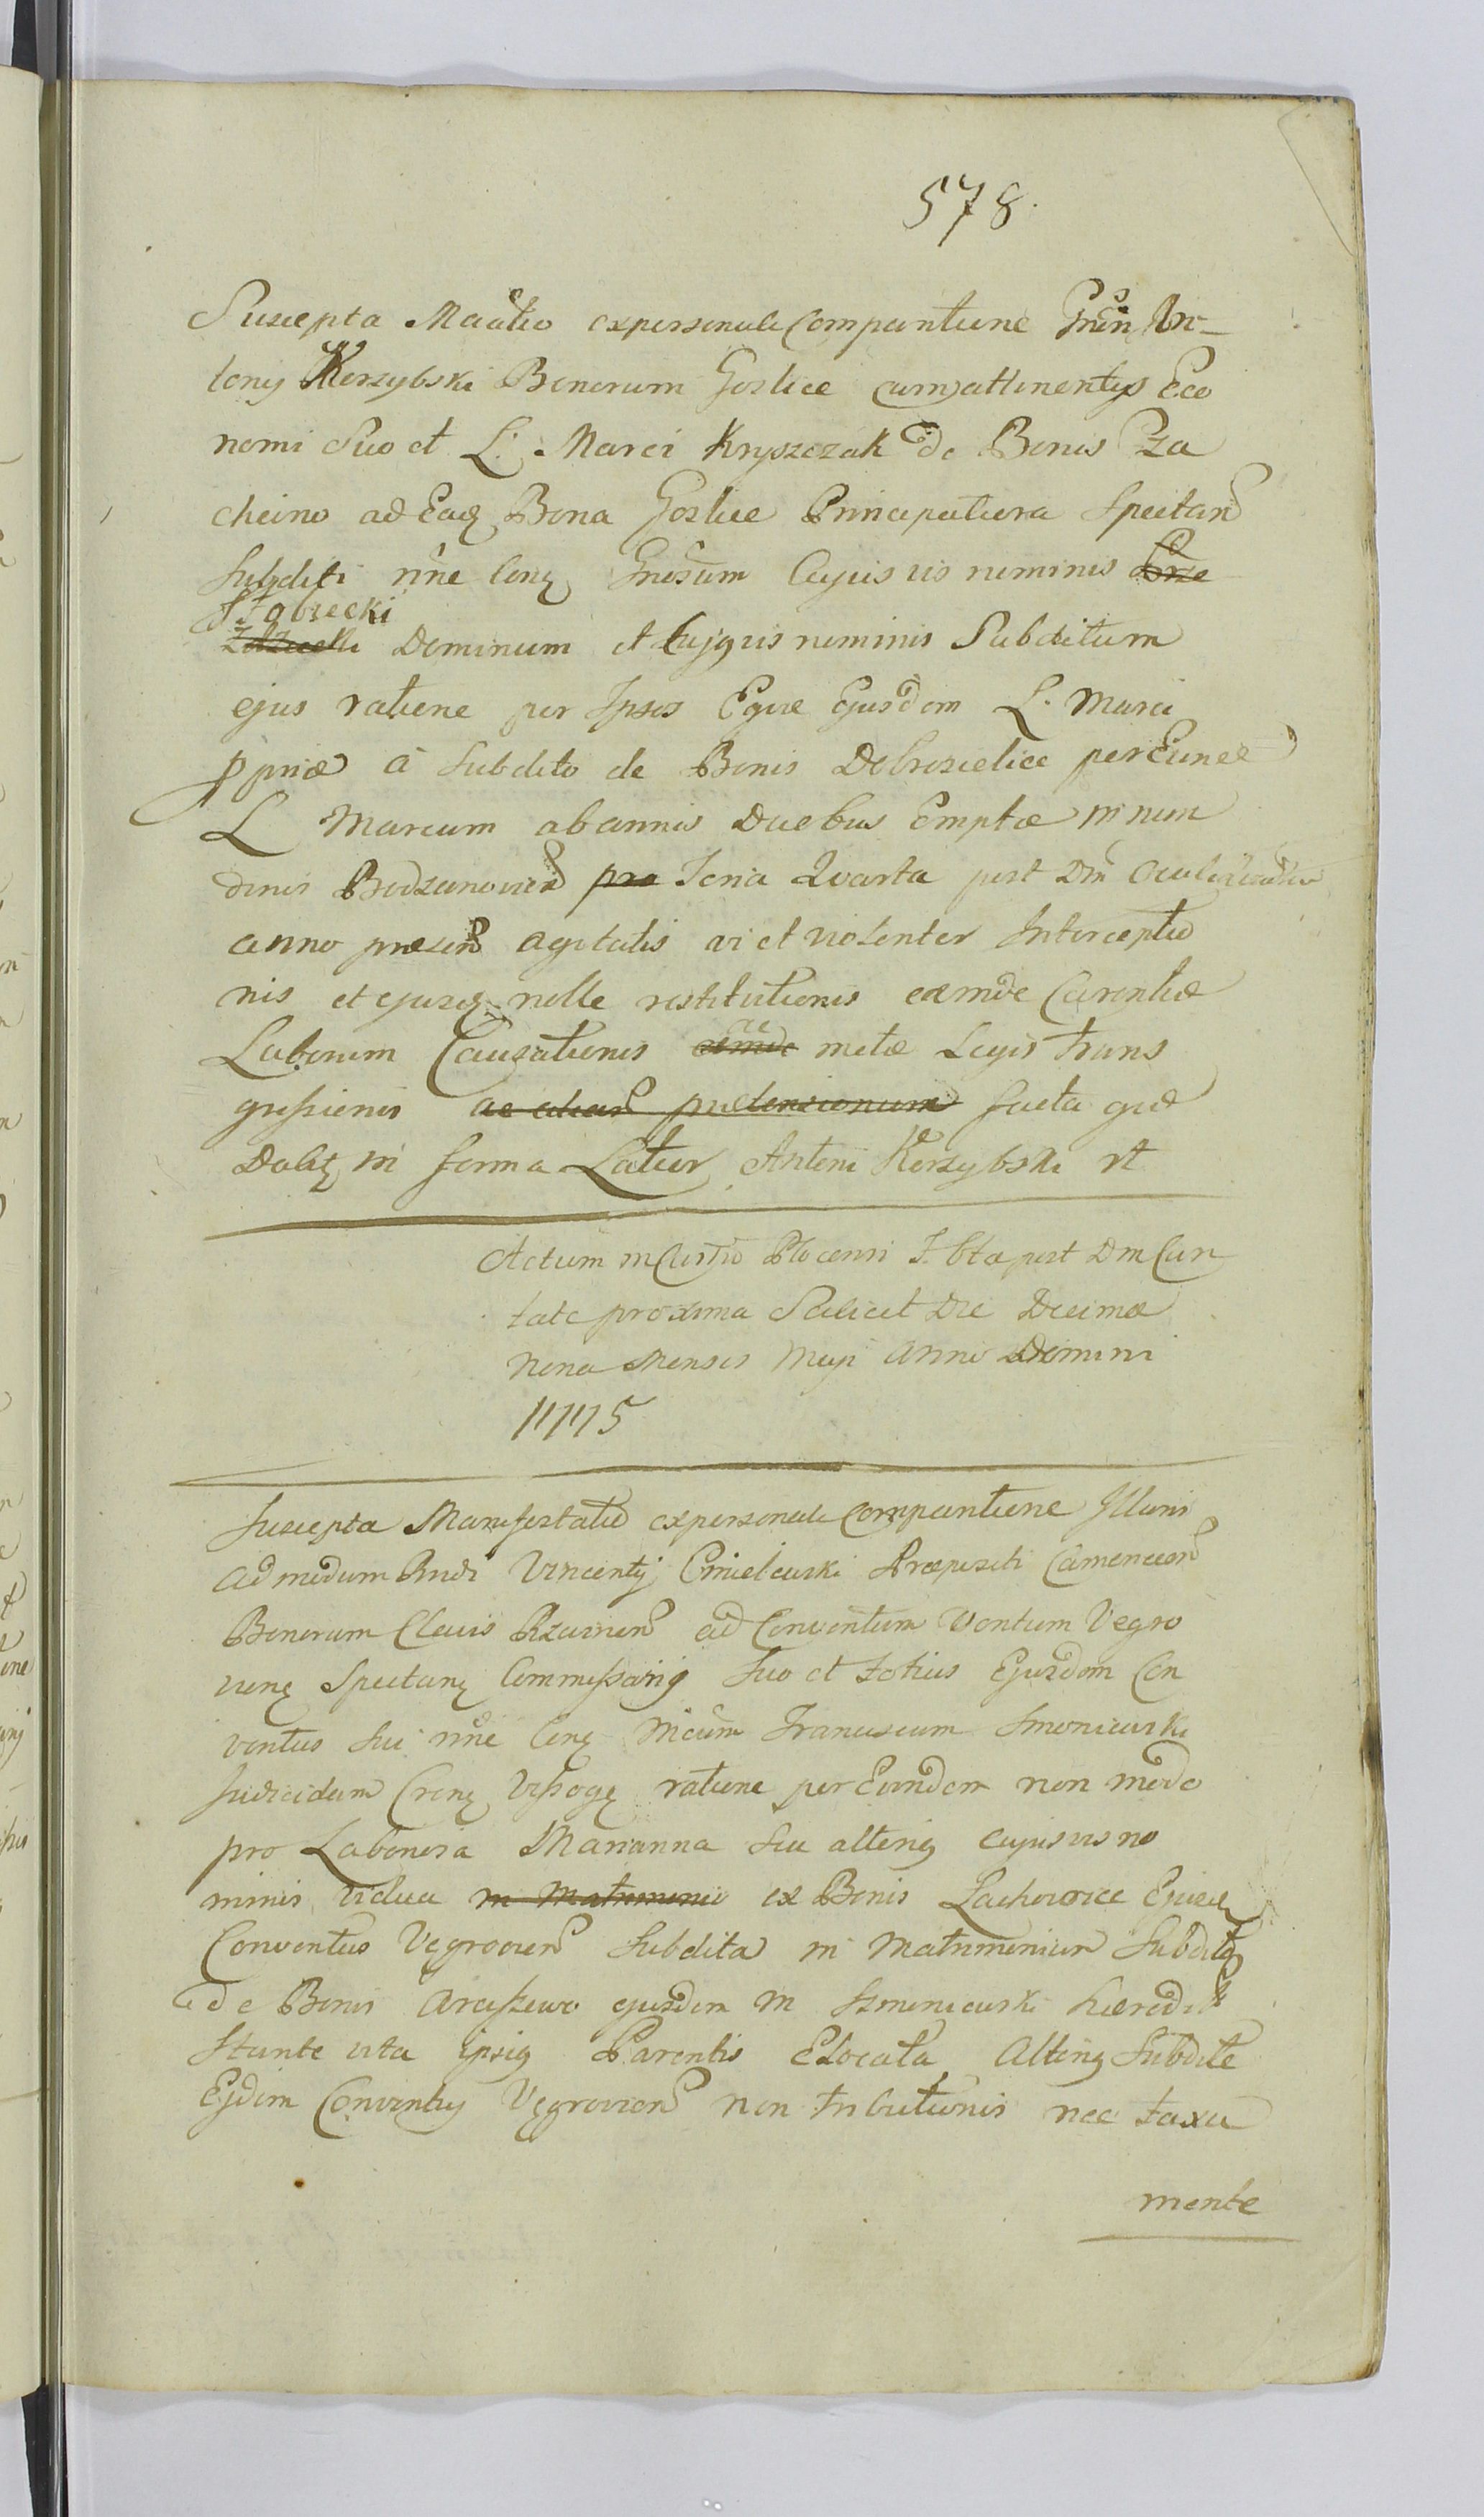 578.
Suscepta Maátio ex personali Compantione Gnén An-
tony Kerzybski Bonorum Goslice cum attinentys Eco
nomi Suo et L: Marci Kryszczak de Bonis Pza
cheino ad Eaq Bona Goslice Principaliora Spectan
Subditi nne Conq Gnosum Cujus vis nominis Brze
Stobzecki
Dominum et Cujqvis nominis Subditum
ejus ratione per Ipsos Eqvae Ejusdem L. Marci
ppriae a Subdito de Bonis Dobrosielice per Eunde
L Marcum ab annis Duobus Emptae in nun
dinis Bodzanovien pro Feria Qvarta post Dm Oculi
anno praesen agitatis vi et violenter Interceptio
nis et ejusq nolle restitutionis eamde Carentiae
Laborum Causationis ac
eamde metae Legis trans
gressionis ac aliar praetensionum facta qvae
Dabit in forma Latior Antoni Kerzybski rt
Actum in Castro Plocensi F. 6ta post Dm Can
tate proxima Scilicet Die Decima
Nona Mensis Maji Anno Domini
1775
Suscepta Manifestatio ex personali Compantione Illuni
admodum Rndi Vincenty Cmielewski Praepositi Camenecen
Bonorum Clavis Rzawien ad Conventum Vontum Vegro
vienq Spectanq Commissarij Suo et totius Ejusdem Con
ventus Sui nne Conq Mcum Franciscum Smoniewski
Judicidam Crenq Vissogq ratione per Eundem non modo
pro Laboriosa Marianna Seu alterig cujus vis no
minis vidua in Matrimonio ex Bonis Lachowice Ejusd
Conventus Vegrovien Subdita in Matrimonium Subditq
de Bonis Araszewo ejusdem M Szmoniewski haeredit
Stante vita ipsiq Parentis Elocata Altenq Subditae
Ejdem Conventus Vegrovien non tributionis nec taxa
mente